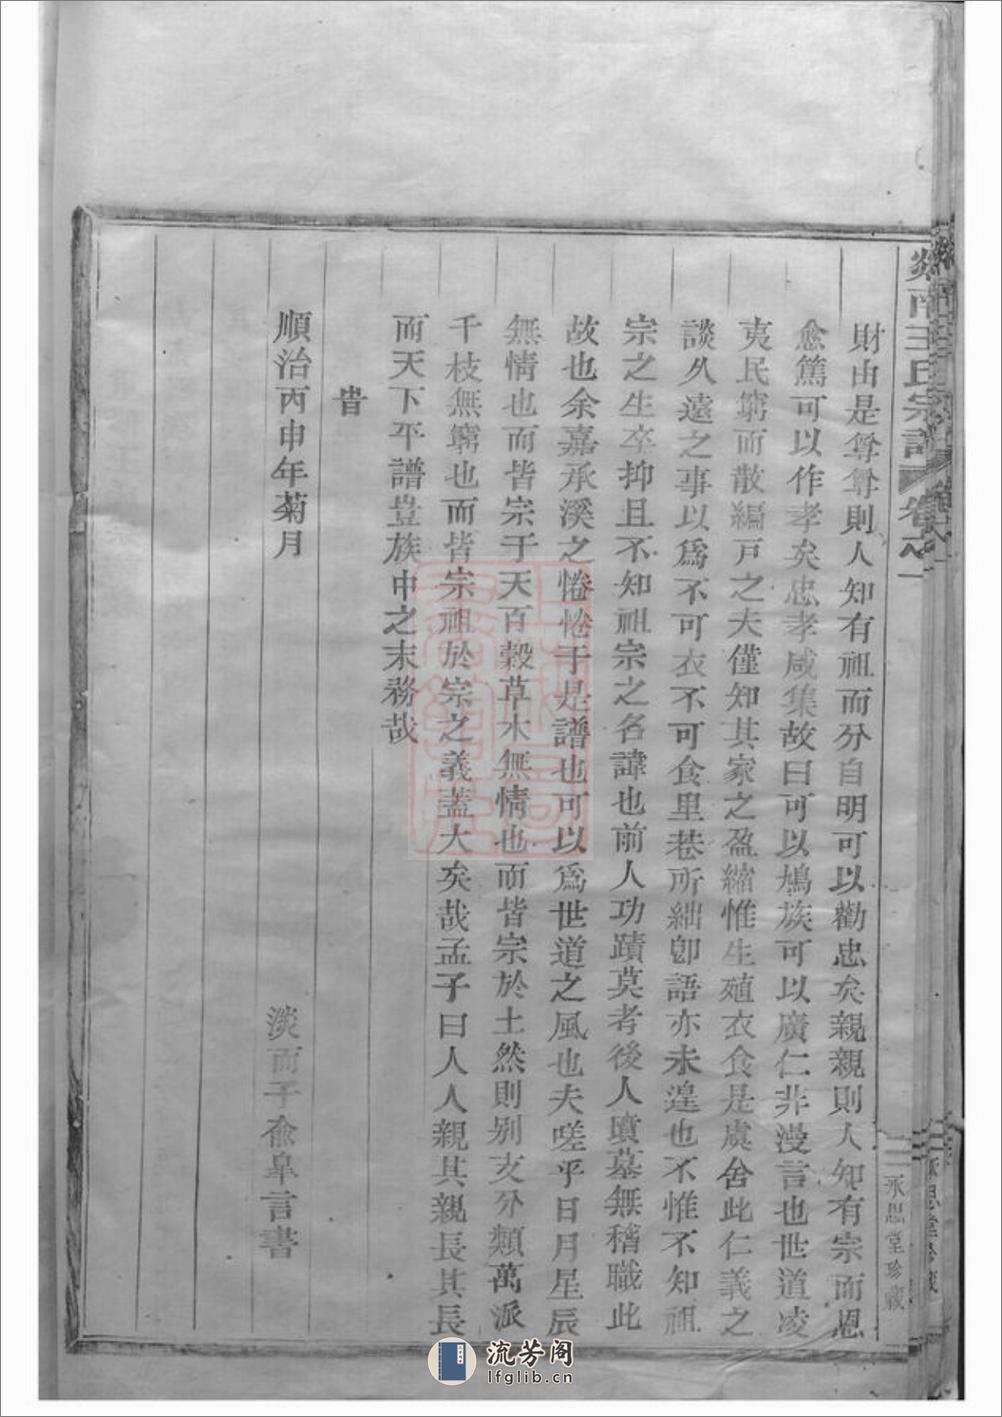 炎南王氏宗譜
卷之一
承思堂珍藏
財由是尊尊則人知有祖而分自明可以勸忠矣親親則人知有宗而恩
愈篤可以作孝矣忠孝咸集故曰可以鳩族可以廣仁非漫言也世道凌
夷民窮而散編戸之夫僅知其家之盈縮惟生殖衣食是虞舍此仁義之
談久遠之事以爲不可衣不可食里巷所絀卽語亦未遑也不惟不知祖
宗之生卒抑且不知祖宗之名諱也前人功蹟莫考後人墳墓無稽職此
故也余嘉承溪之惓惓于是譜也可以爲世道之風也夫嗟乎日月星辰
無情也而皆宗于天百穀草木無情也而皆宗於土然則别支分類萬派
千枝無窮也而皆宗祖於宗之義蓋大矣哉孟子曰人人親其親長其長
而天下平譜豈族中之末務哉
旹
順治丙申年菊月
淡而子俞臯言書
流芳阁
lfglib.cn